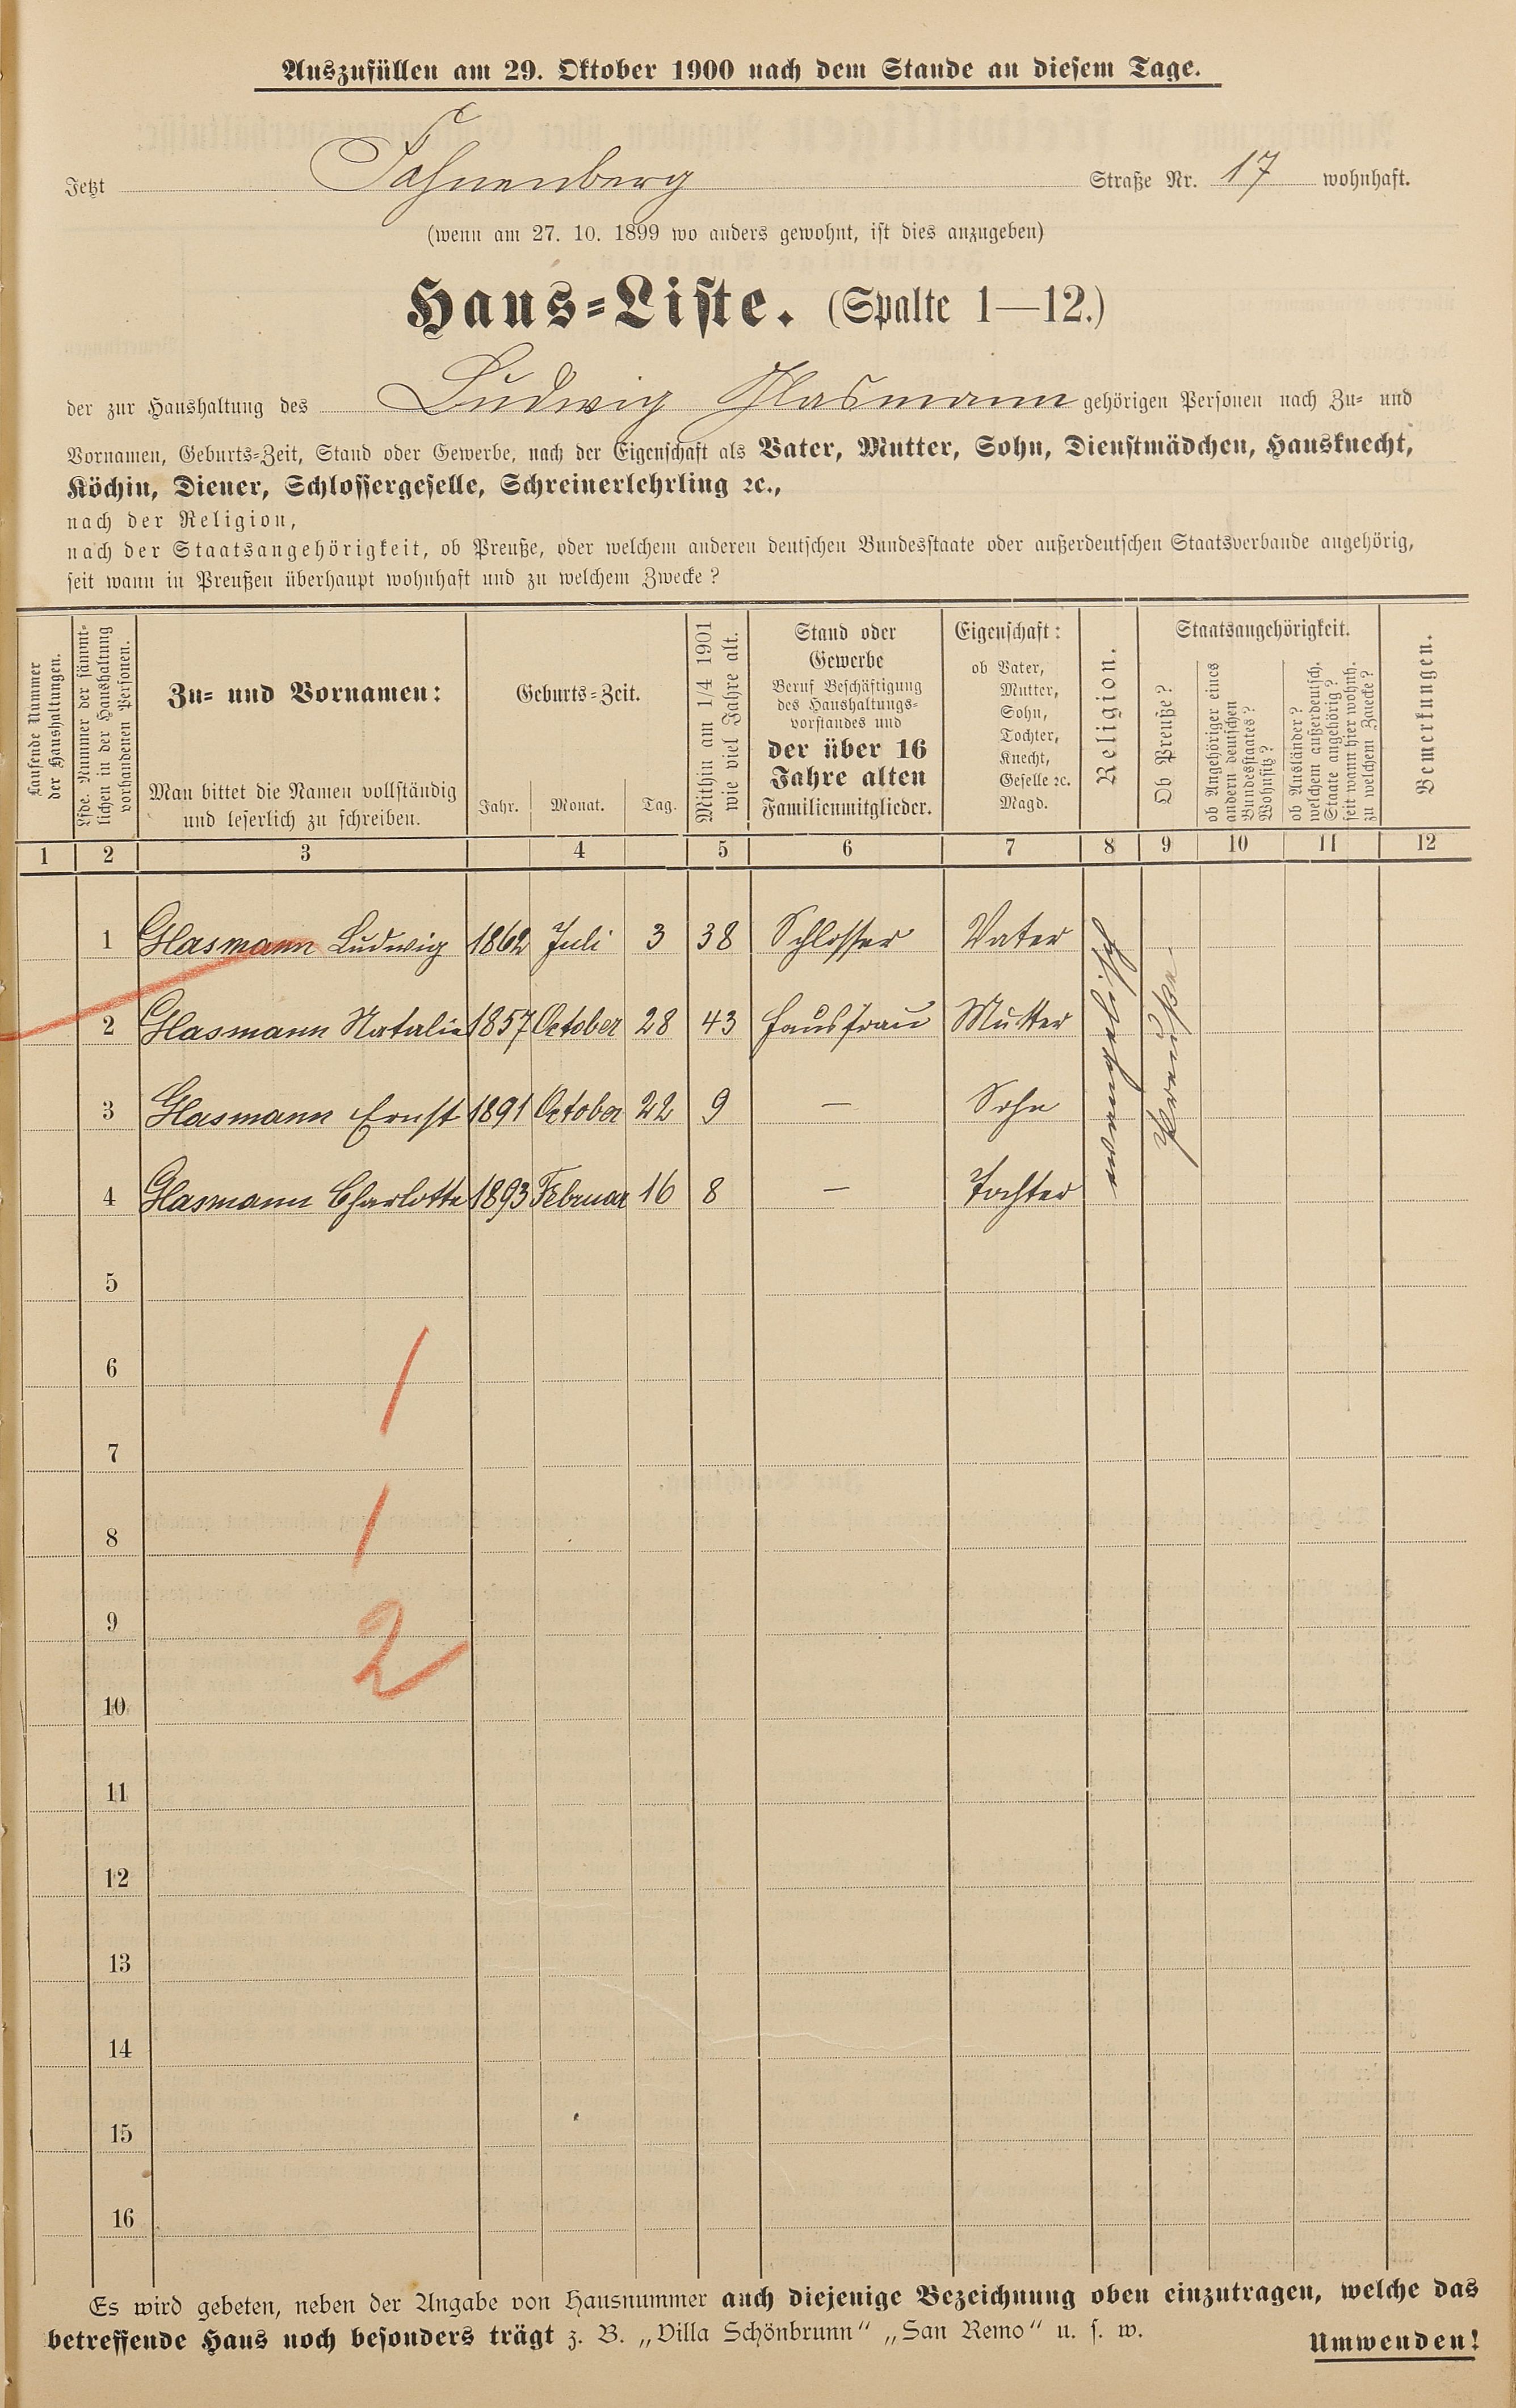 Auszufüllen am 29. Oktober 1900 nach dem Stande an diesem Tage.
Jetzt Fahnenberg Straße Nr. 17 wohnhaft.
(wenn am 27. 10. 1899 wo anders gewohnt, ist dies anzugeben)
Haus-Liste. (Spalte 1—12.)
der zur Haushaltung des Ludwig Glasmann gehörigen Personen nach Zu- und
Vornamen, Geburts-Zeit, Stand oder Gewerbe, nach der Eigenschaft als Vater, Mutter, Sohn, Dienstmädchen, Hausknecht,
Köchin, Diener, Schlossergeselle, Schreinerlehrling ꝛc.,
nach der Religion,
nach der Staatsangehörigkeit, ob Preuße, oder welchem anderen deutschen Bundesstaate oder außerdeutschen Staatsverbande angehörig,
seit wann in Preußen überhaupt wohnhaft und zu welchem Zwecke?
Laufende Nummer
der Haushaltungen.
Lfde. Nummer der sämmt-
lichen in der Haushaltung
vorhandenen Personen.
Zu- und Vornamen:
Man bittet die Namen vollständig
und leserlich zu schreiben.
Geburts-Zeit.
Jahr. Monat. Tag.
Mithin am 1/4 1901
wie viel Jahre alt.
Stand oder
Gewerbe
Beruf Beschäftigung
des Haushaltungs-
vorstandes und
der über 16
Jahre alten
Familienmitglieder.
Eigenschaft:
ob Vater,
Mutter,
Sohn,
Tochter,
Knecht,
Geselle ꝛc.
Magd.
Religion.
Staatsangehörigkeit.
Ob Preuße?
ob Angehöriger eines
andern deutschen
Bundesstaates?
Wohnsitz?
ob Ausländer?
welchem außerdeutsch.
Staate angehörig?
seit wann hier wohnh.
zu welchem Zwecke?
Bemerkungen.
1 2 3 4 5 6 7 8 9 10 11 12
1 Glasmann Ludwig 1862 Juli 3 38 Schlosser Vater
2 Glasmann Natalie 1857 October 28 43 Hausfrau Mutter
3 Glasmann Ernst 1891 October 22 9 — Sohn
4 Glasmann Charlotte 1893 Februar 16 8 — Tochter
evangelisch
Preuße
5
6
1
7
8
1
9
2
10
11
12
13
14
15
16
Es wird gebeten, neben der Angabe von Hausnummer auch diejenige Bezeichnung oben einzutragen, welche das
betreffende Haus noch besonders trägt z. B. „Villa Schönbrunn“ „San Remo“ u. s. w.
Umwenden!